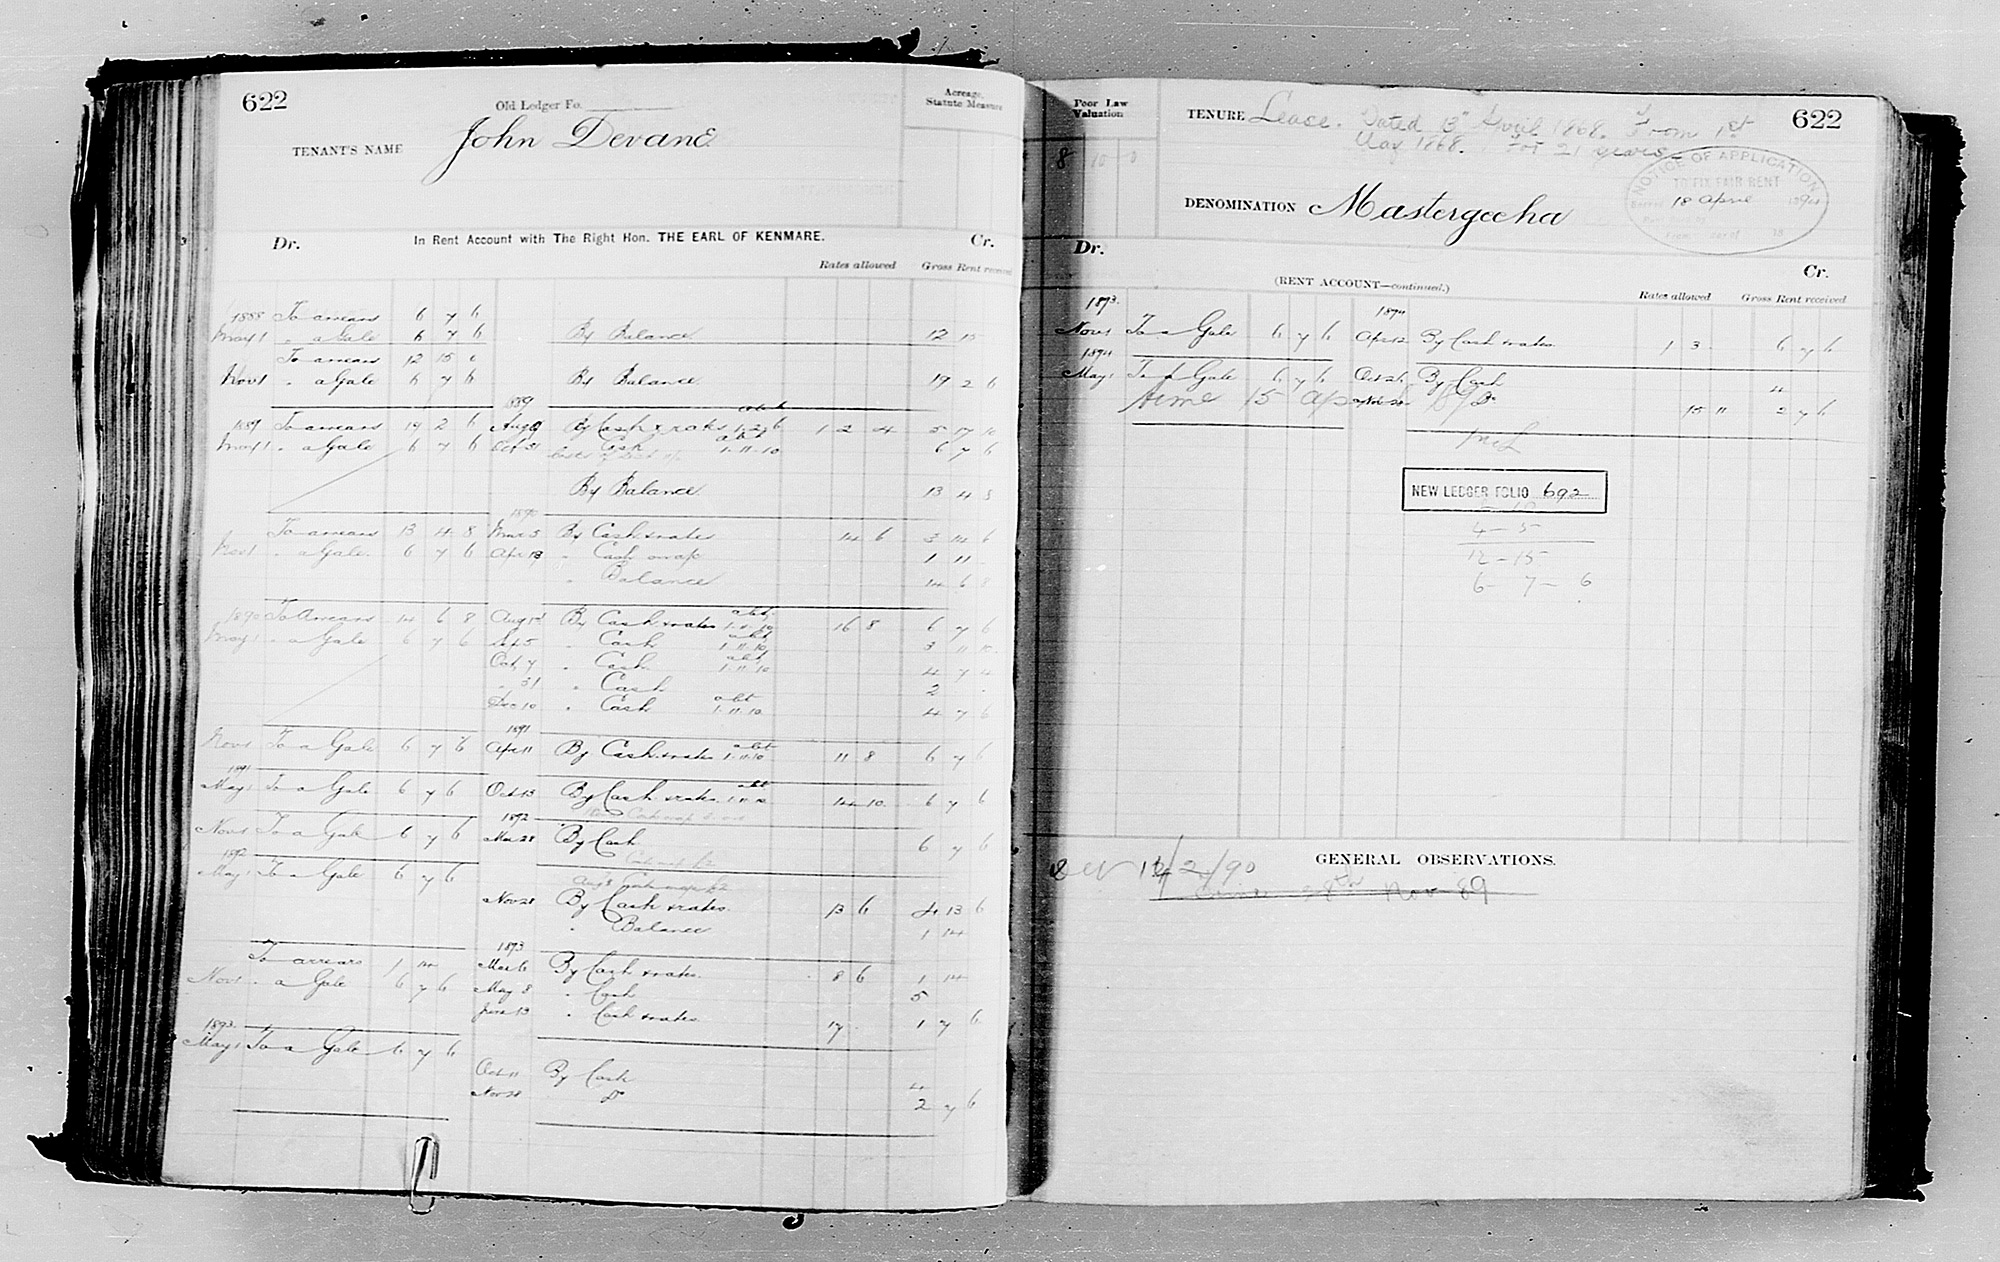 622
Old Ledger Fo.
TENANT'S NAME John Devane
Acreage, Statute Measure
Dr. In Rent Account with The Right Hon. THE EARL OF KENMARE. Cr.
Rates allowed Gross Rent received
1888 To arrears 6 7 6
May 1 " a Gale 6 7 6 By Balance 12 15
To arrears 12 15 0
Nov 1 " a Gale 6 7 6 By Balance 19 2 6
1889
1889 To arrears 19 2 6 Aug By Cash & rates 1 2 4 5 17 10
May 1 " a Gale 6 7 6 Oct 31 " Cash 1.11.10 6 7 6
By Balance 13 4 8
1890
To arrears 13 4 8 Mar 3 By Cash & rates 14 6 3 14 6
Nov 1 " a Gale 6 7 6 Apr 18 " Cash 1 11
" Balance 14 6 8
1890 To Arrears 14 6 8 Aug 1 By Cash & rates 16 8 6 7 6
May 1 " a Gale 6 7 6 Sep 5 " Cash 1.11.10 3 11 10
Oct 7 " Cash 1.11.10 4 7 4
" 31 " Cash 2
Dec 10 " Cash 1.11.10 4 7 6
1891
Nov 1 To a Gale 6 7 6 Apr 11 By Cash & rates 1.11.10 11 8 6 7 6
1891
May 1 To a Gale 6 7 6 Oct 13 By Cash & rates 14 10 6 7 6
1892
Nov 1 To a Gale 6 7 6 Mar 28 By Cash 6 7 6
1892
May 1 To a Gale 6 7 6
Nov 28 By Cash & rates 13 6 4 13 6
" Balance 1 14
1893
To arrears 1 14 Mar 6 By Cash & rates 8 6 1 14
Nov 1 " a Gale 6 7 6 May 8 " Cash 5
June 13 " Cash & rates 17 1 7 6
1893
May 1 To a Gale 6 7 6
Oct 11 By Cash 4
Nov 28 Do 2 7 6
Poor Law Valuation
8 10 0
TENURE Lease. Dated 13" April 1868. From 1st
May 1868. For 21 years
622
NOTICE OF APPLICATION
TO FIX FAIR RENT
18 April
DENOMINATION Mastergeeha
Dr. Cr.
(RENT ACCOUNT—continued.)
Rates allowed Gross Rent received
1893. 1894
Nov 1 To a Gale 6 7 6 Apr 12 By Cash & rates 1 3 6 7 6
1894
May 1 To a Gale 6 7 6 Oct 26 By Cash 4
Do 15 11 2 7 6
NEW LEDGER FOLIO 692
4-5
12-15
6-7-6
12/2/90
GENERAL OBSERVATIONS.
28th Nov 89